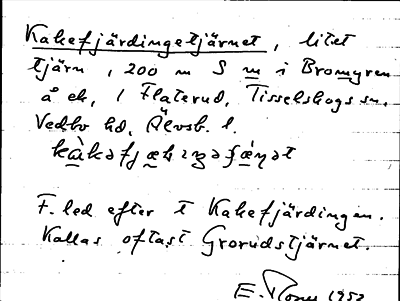 Kakefjärdingetjärnet, litet
tjärn, 200 m S m i Bromyren
å ek, / Flaterud, Tisselskogs sn.
Vedbo hd, Älvsb. l.
F. led efter t Kakefjärdingen.
Kallas oftast Grorudstjärnet.
E. 1952